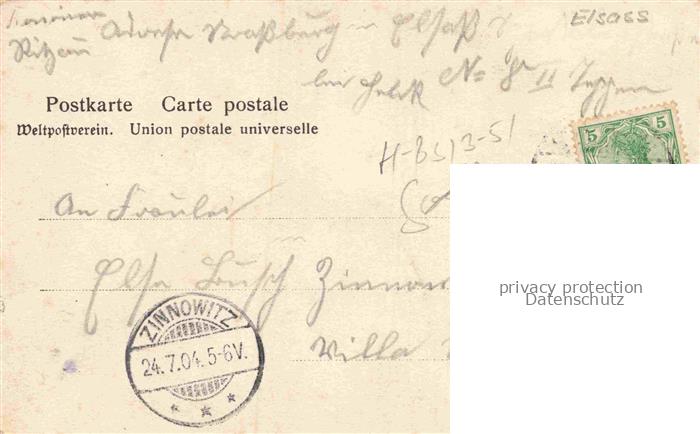 Adresse Straßburg in Elsaß
Elsass
bei No 8 II
Postkarte Carte postale
Weltpostverein. Union postale universelle
5 5
H-8513-51
An Fräulei
Else Busch Zinnow
Villa
ZINNOWITZ
24.7.04.5-6V.
* * *
privacy protection
Datenschutz